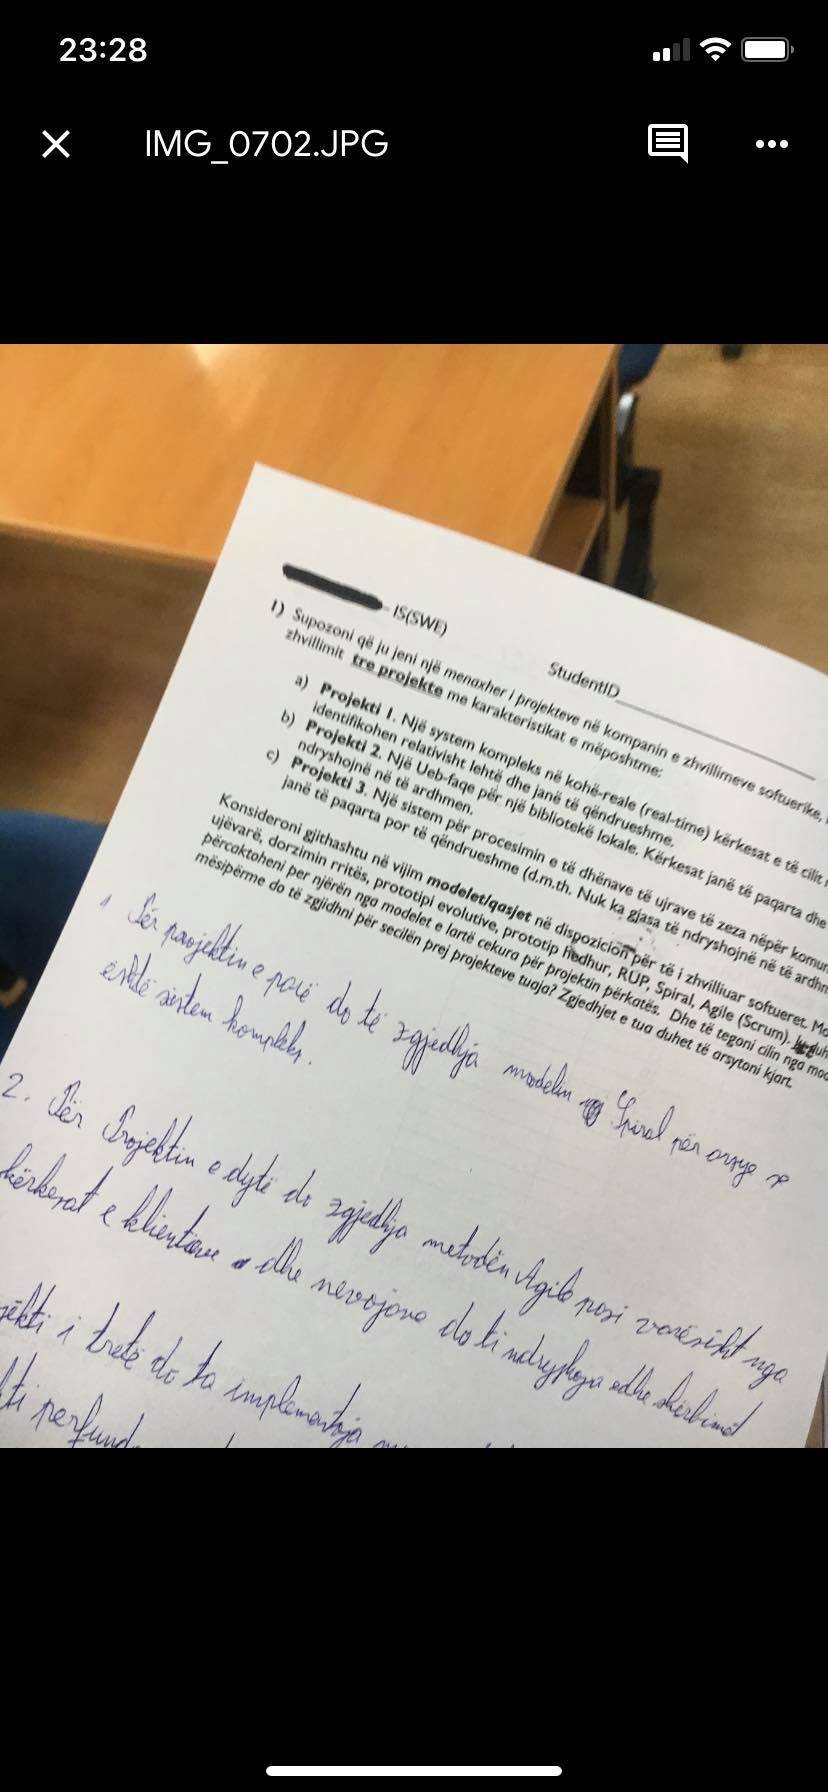 23:28
IMG_0702.JPG
- IS(SWE)
StudentID
1) Supozoni që ju jeni një menaxher i projekteve në kompanin e zhvillimeve softuerike,
zhvillimit tre projekte me karakteristikat e mëposhtme:
a) Projekti 1. Një system kompleks në kohë-reale (real-time) kërkesat e të cilit
identifikohen relativisht lehtë dhe janë të qëndrueshme.
b) Projekti 2. Një Ueb-faqe për një bibliotekë lokale. Kërkesat janë të paqarta dhe
ndryshojnë në të ardhmen.
c) Projekti 3. Një sistem për procesimin e të dhënave të ujrave të zeza nëpër
janë të paqarta por të qëndrueshme (d.m.th. Nuk ka gjasa të ndryshojnë në të
Konsideroni gjithashtu në vijim modelet/qasjet në dispozicion për të i zhvilliuar softueret.
ujëvarë, dorzimin rritës, prototipi evolutive, prototip hedhur, RUP, Spiral, Agile (Scrum).
përcaktoheni per njërën nga modelet e lartë cekura për projektin përkatës. Dhe të tegoni cilin nga
mësipërme do të zgjidhni për secilën prej projekteve tuaja? Zgjedhjet e tua duhet të arsytoni kjart.
1 Për projektin e parë do të zgjedhja modelin Spiral për arsye se
është sistem kompleks.
2. Për Projektin e dytë do zgjedhja metodën Agile pasi varësisht nga
kërkesat e klientave dhe nevojave do ti ndryshoja edhe shërbimet
i tretë do ta implementoja